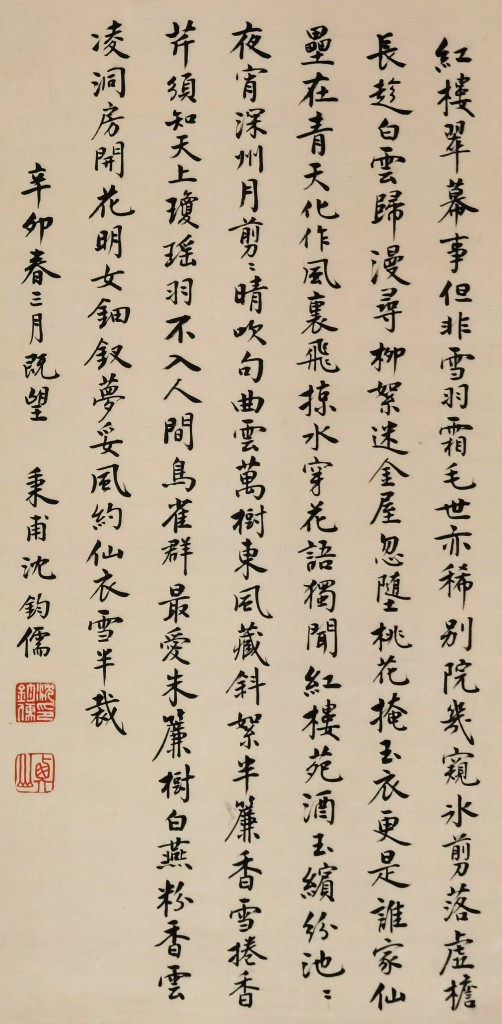 紅樓翠幕事但非雪羽霜毛世亦稀別院幾窺氷剪落虛檐
長趁白雲歸漫尋柳絮迷金屋忽墮桃花掩玉衣更是誰家仙
壘在青天化作風裏飛掠水穿花語獨聞紅樓苑酒玉繽紛池〻
夜宵深州月剪〻晴吹句曲雲萬樹東風藏斜絮半簾香雪捲香
芹須知天上瓊瑤羽不入人間鳥雀群最愛朱簾樹白燕粉香雲
凌洞房開花明女鈿釵夢妥風約仙衣雪半裁
辛卯春三月既望 秉甫沈鈞儒
沈鈞儒印